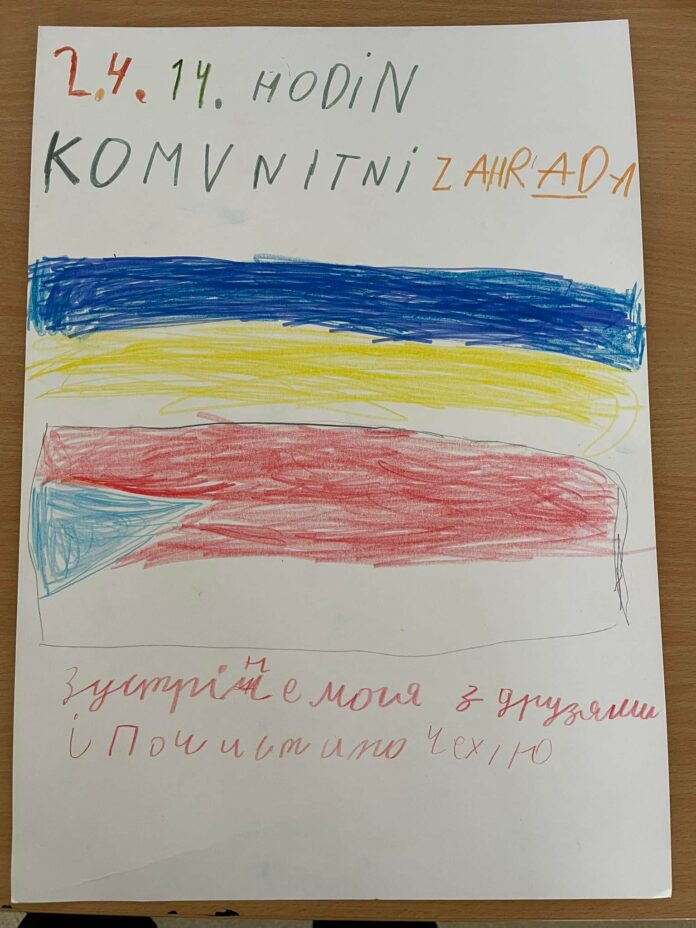 2.4. 14. HODIN
KOMUNITNI ZAHRADA
Зустрінемося з друзями
і Почистимо Чехію